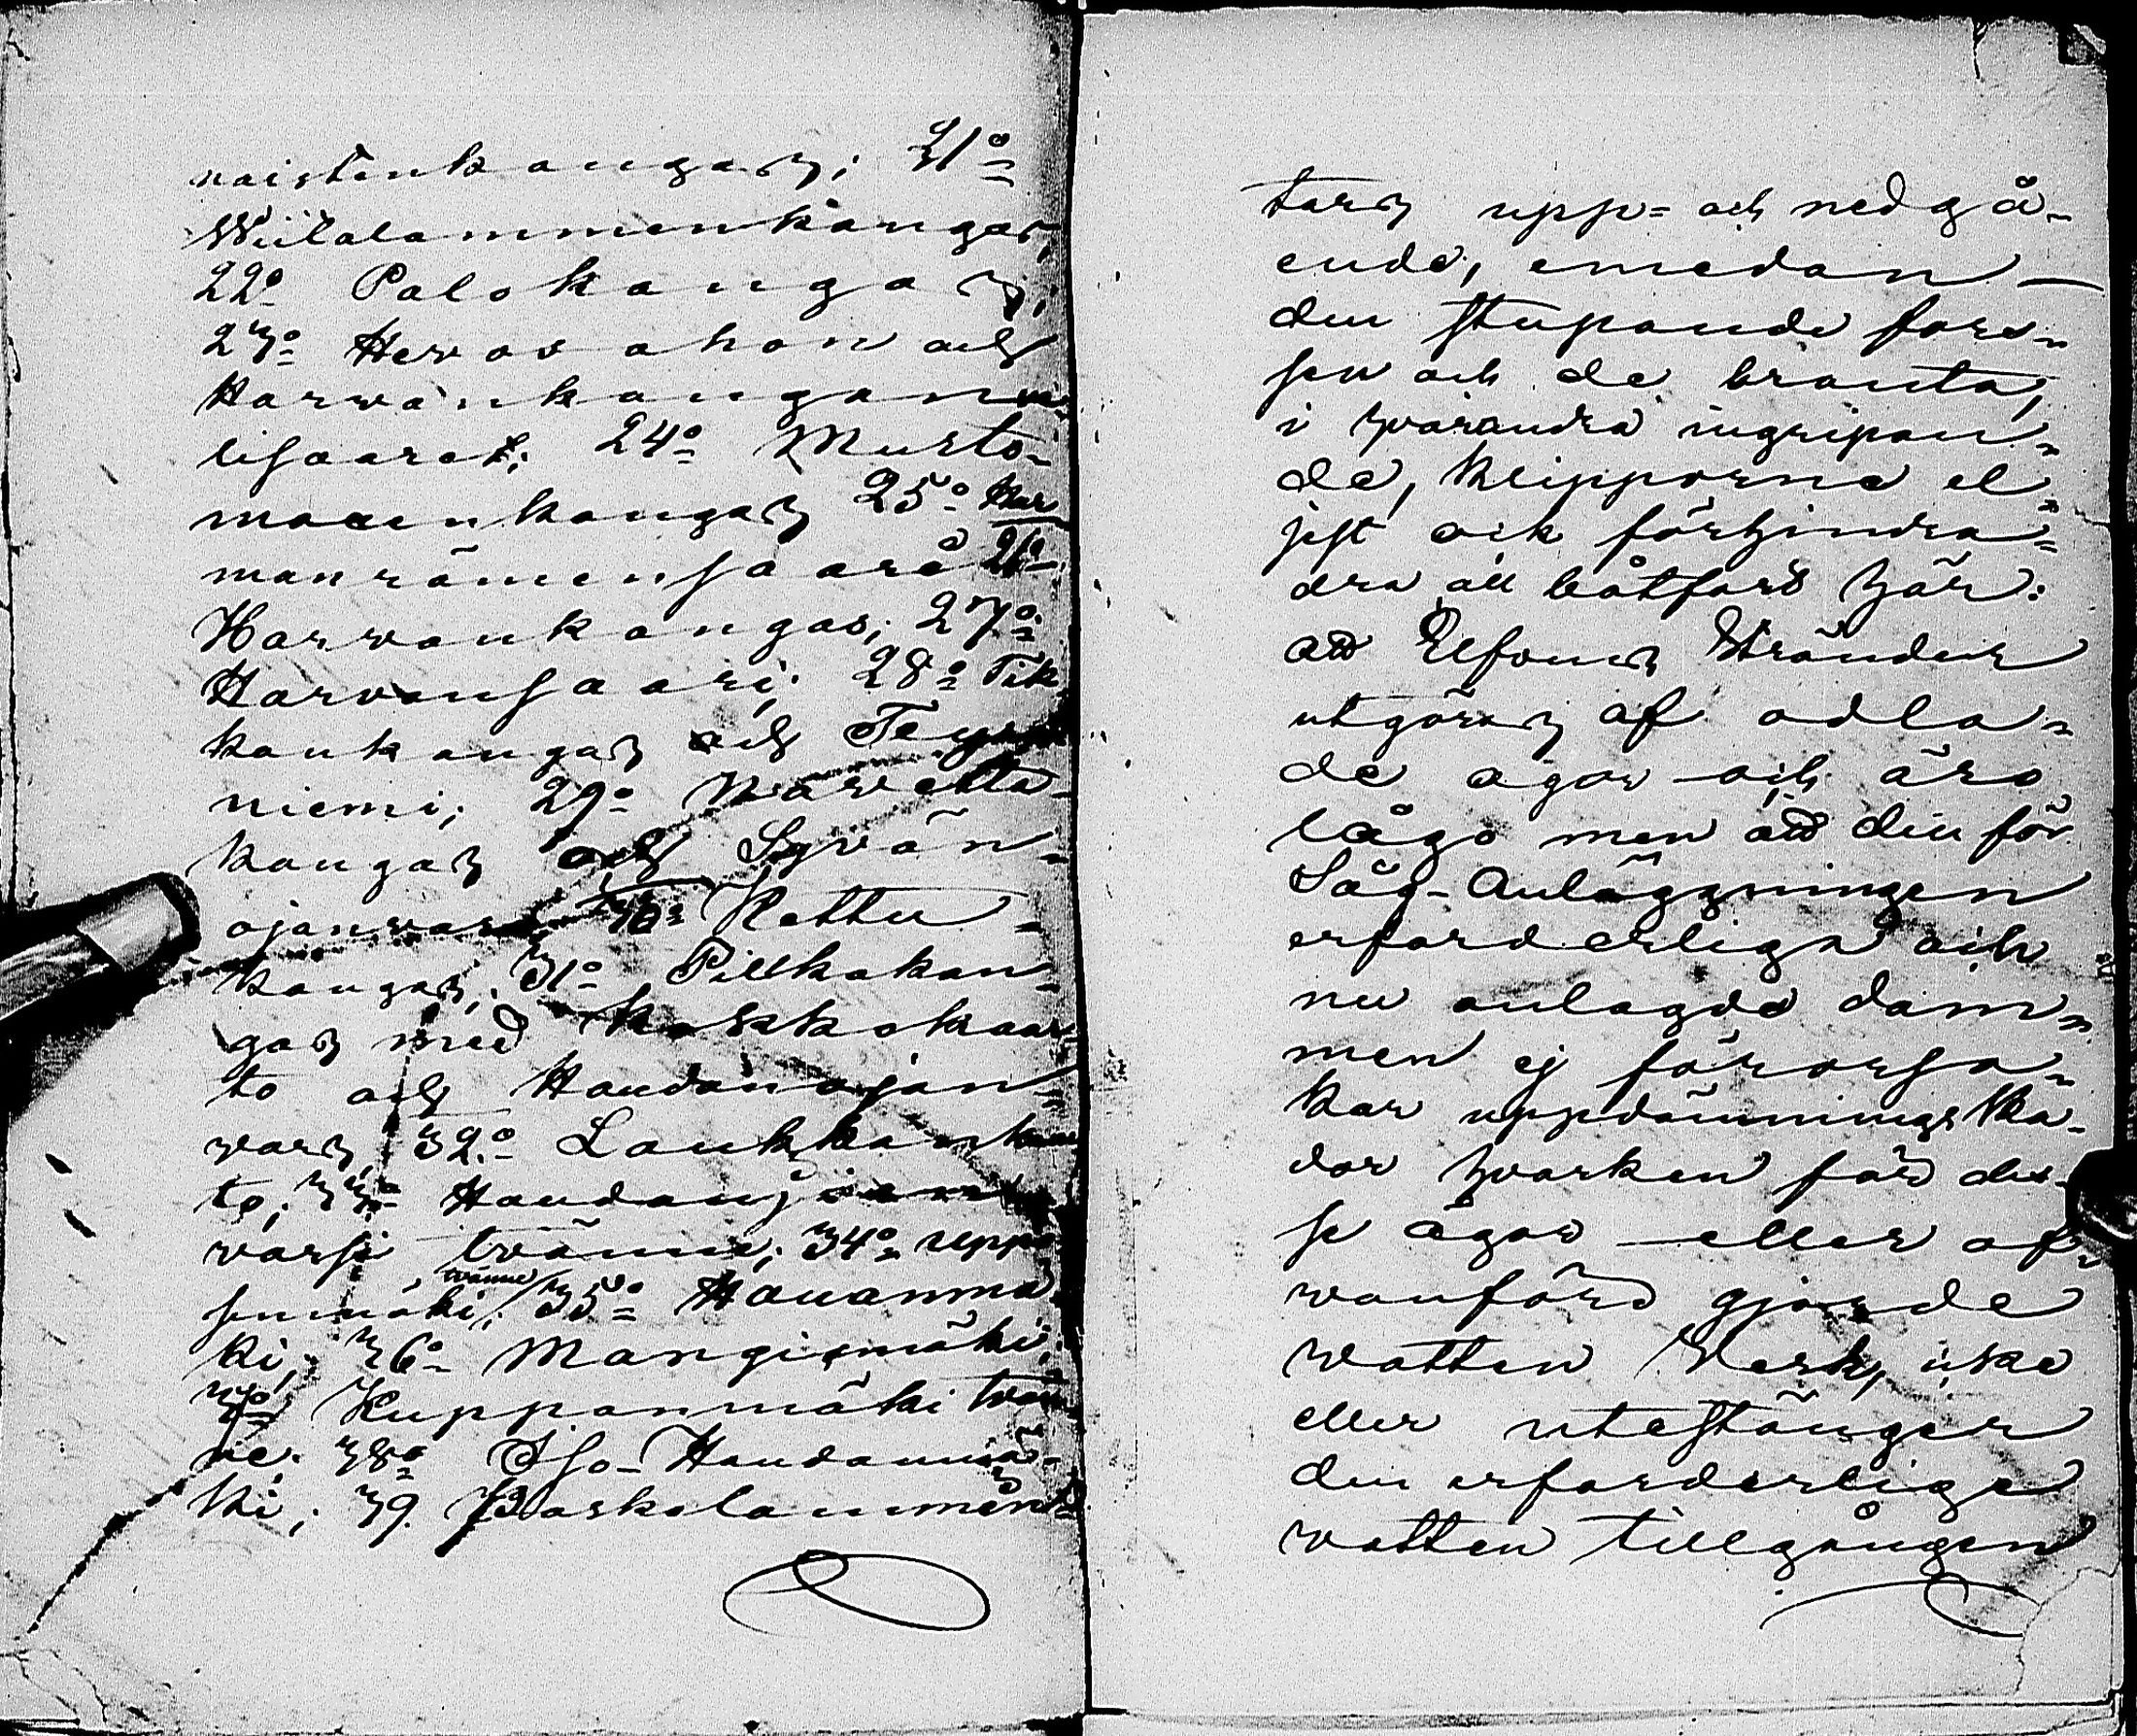 naistenkangas; 21º
Wiitalammenkangas,
22º Palokangas;
23º Hervasahon och
Harvankangan
lisaaret; 24º Musto-
maankangas 25º Har
manrämensaare 26º
Harvankangas; 27º
Harvansaari; 28º Tik
kankangas och
niemi; 29º Navetta-
kangas och Syvän-
ojanvars 30º Kettu-
kangas; 31º Pillkakan-
gas med
to och Haudanojan-
vars, 32º
to; 33º
varsi tvänne; 34º Upp
senmäki, tvänne; 35º Hauanmä
ki, 36º Mangismäki;
37º Kupponmäki tvän
ne. 38º Iso-Haudanmä-
ki; 39. Paskolammen-
tars upp- och nedgå-
ende, emedan
den stupande fors-
sen och de branta,
i hvarandra ingripan-
de, klipporna el-
jest ock förhindra-
dra all båtfard här:
att Elfvens Stränder
utgöras af odla-
de ägor och äro
låga men att den för
Såg-Anläggningen
erforderliga och
nu anlagda dam-
men ej förorsa-
kar uppdämningsska-
dor hvarken för des-
se ägor eller of-
vanför gjorde
vatten Verk, icke
eller utestänger
den erforderliga
vatten tillgången